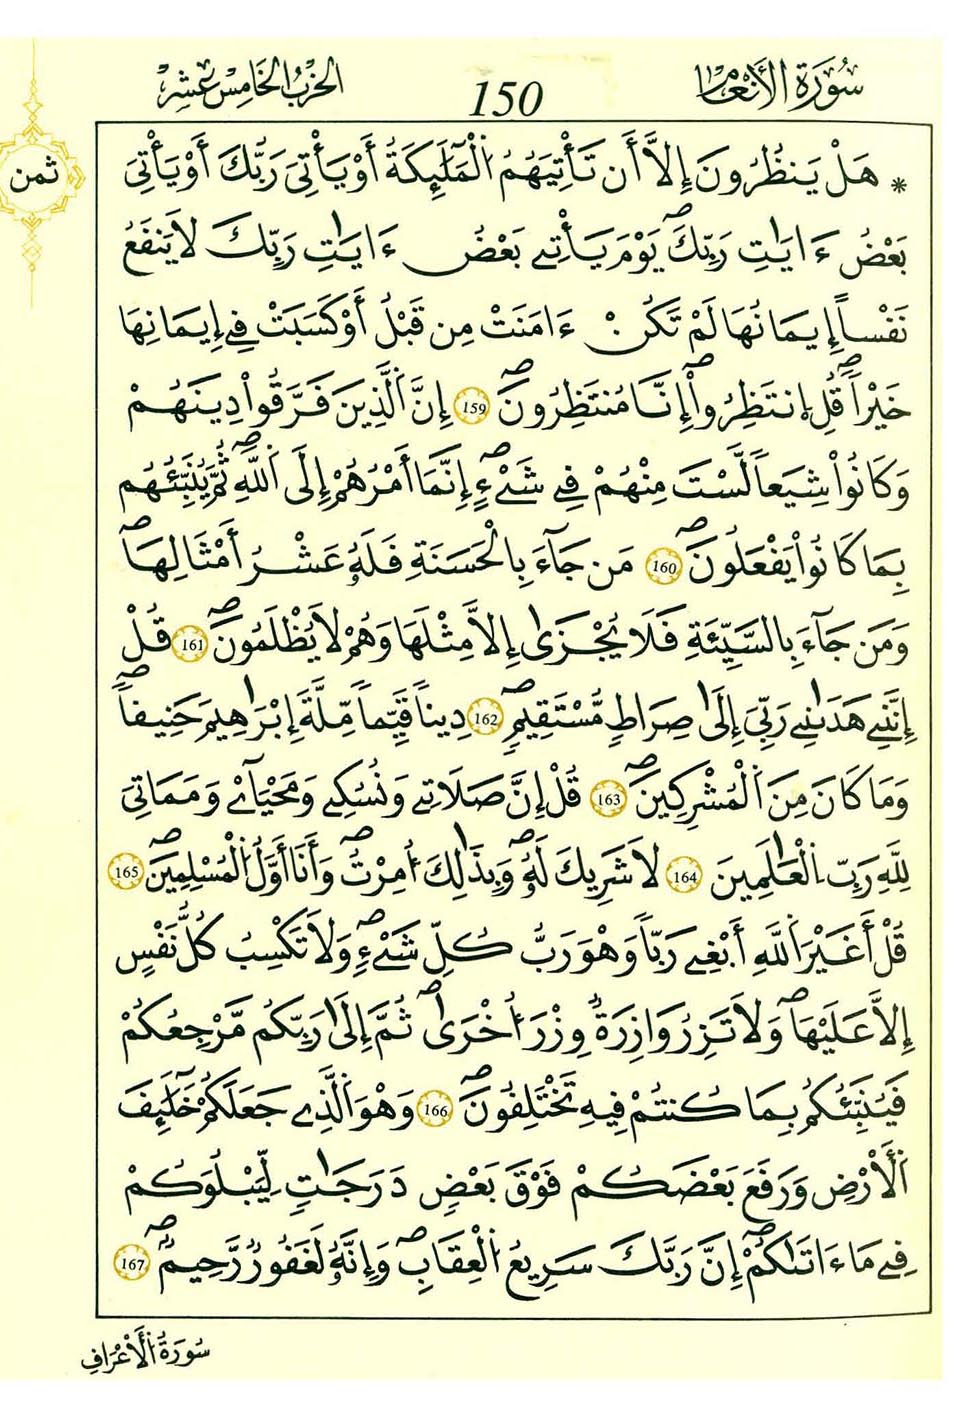 سُورَةُ الأَنْعَامِ 150 الحِزْبُ الخَامِسَ عَشَرَ
ثمن
* هَلْ يَنظُرُونَ إِلَّا أَن تَأْتِيَهُمُ اُلْمَلَٰٓئِكَةُ أَوْ يَأْتِيَ رَبُّكَ أَوْ يَأْتِيَ
بَعْضُ ءَايَٰتِ رَبِّكَۖ يَوْمَ يَأْتِے بَعْضُ ءَايَٰتِ رَبِّكَ لَا يَنفَعُ
نَفْساً إِيمَٰنُهَا لَمْ تَكُنْ ءَامَنَتْ مِن قَبْلُ أَوْ كَسَبَتْ فِے إِيمَٰنِهَا
خَيْراٗۖ قُلِ اِنتَظِرُوٓاْۖ إِنَّا مُنتَظِرُونَۖ 159 إِنَّ اَلذِينَ فَرَّقُواْ دِينَهُمْ
وَكَانُواْ شِيَعاٗ لَّسْتَ مِنْهُمْ فِے شَےْءٍۖ إِنَّمَا أَمْرُهُمْ إِلَى اَللَّهِۖ ثُمَّ يُنَبِّئُهُم
بِمَا كَانُواْ يَفْعَلُونَۖ 160 مَن جَآءَ بِالْحَسَنَةِ فَلَهُۥ عَشْرُ أَمْثَالِهَاۖ
وَمَن جَآءَ بِالسَّيِّئَةِ فَلَا يُجْزَىٰ إِلَّا مِثْلَهَا وَهُمْ لَا يُظْلَمُونَۖ 161 قُلْ
إِنَّنِے هَدَىٰنِے رَبِّيَ إِلَىٰ صِرَاطٖ مُّسْتَقِيمٖۖ 162 دِيناٗ قَيِّماٗ مِّلَّةَ إِبْرَٰهِيمَ حَنِيفاٗۖ
وَمَا كَانَ مِنَ اَلْمُشْرِكِينَۖ 163 قُلْ إِنَّ صَلَاتِے وَنُسُكِے وَمَحْيَآےْ وَمَمَاتِيَ
لِلهِ رَبِّ اِلْعَٰلَمِينَ 164 لَا شَرِيكَ لَهُۥۖ وَبِذَٰلِكَ أُمِرْتُۖ وَأَنَا أَوَّلُ اُلْمُسْلِمِينَۖ 165
قُلْ أَغَيْرَ اَللَّهِ أَبْغِے رَبّاٗ وَهْوَ رَبُّ كُلِّ شَےْءٖۖ وَلَا تَكْسِبُ كُلُّ نَفْسٍ
إِلَّا عَلَيْهَاۖ وَلَا تَزِرُ وَازِرَةٞ وِزْرَ أُخْرَىٰۖ ثُمَّ إِلَىٰ رَبِّكُم مَّرْجِعُكُمْ
فَيُنَبِّئُكُم بِمَا كُنتُمْ فِيهِ تَخْتَلِفُونَۖ 166 وَهْوَ اَلذِے جَعَلَكُمْ خَلَٰٓئِفَ
اَلْأَرْضِ وَرَفَعَ بَعْضَكُمْ فَوْقَ بَعْضٖ دَرَجَٰتٖ لِّيَبْلُوَكُمْ
فِے مَا ءَاتَىٰكُمْۖ إِنَّ رَبَّكَ سَرِيعُ اُلْعِقَابِۖ وَإِنَّهُۥ لَغَفُورٞ رَّحِيمٞۖ 167
سُورَةُ اُلْأَعْرَافِ